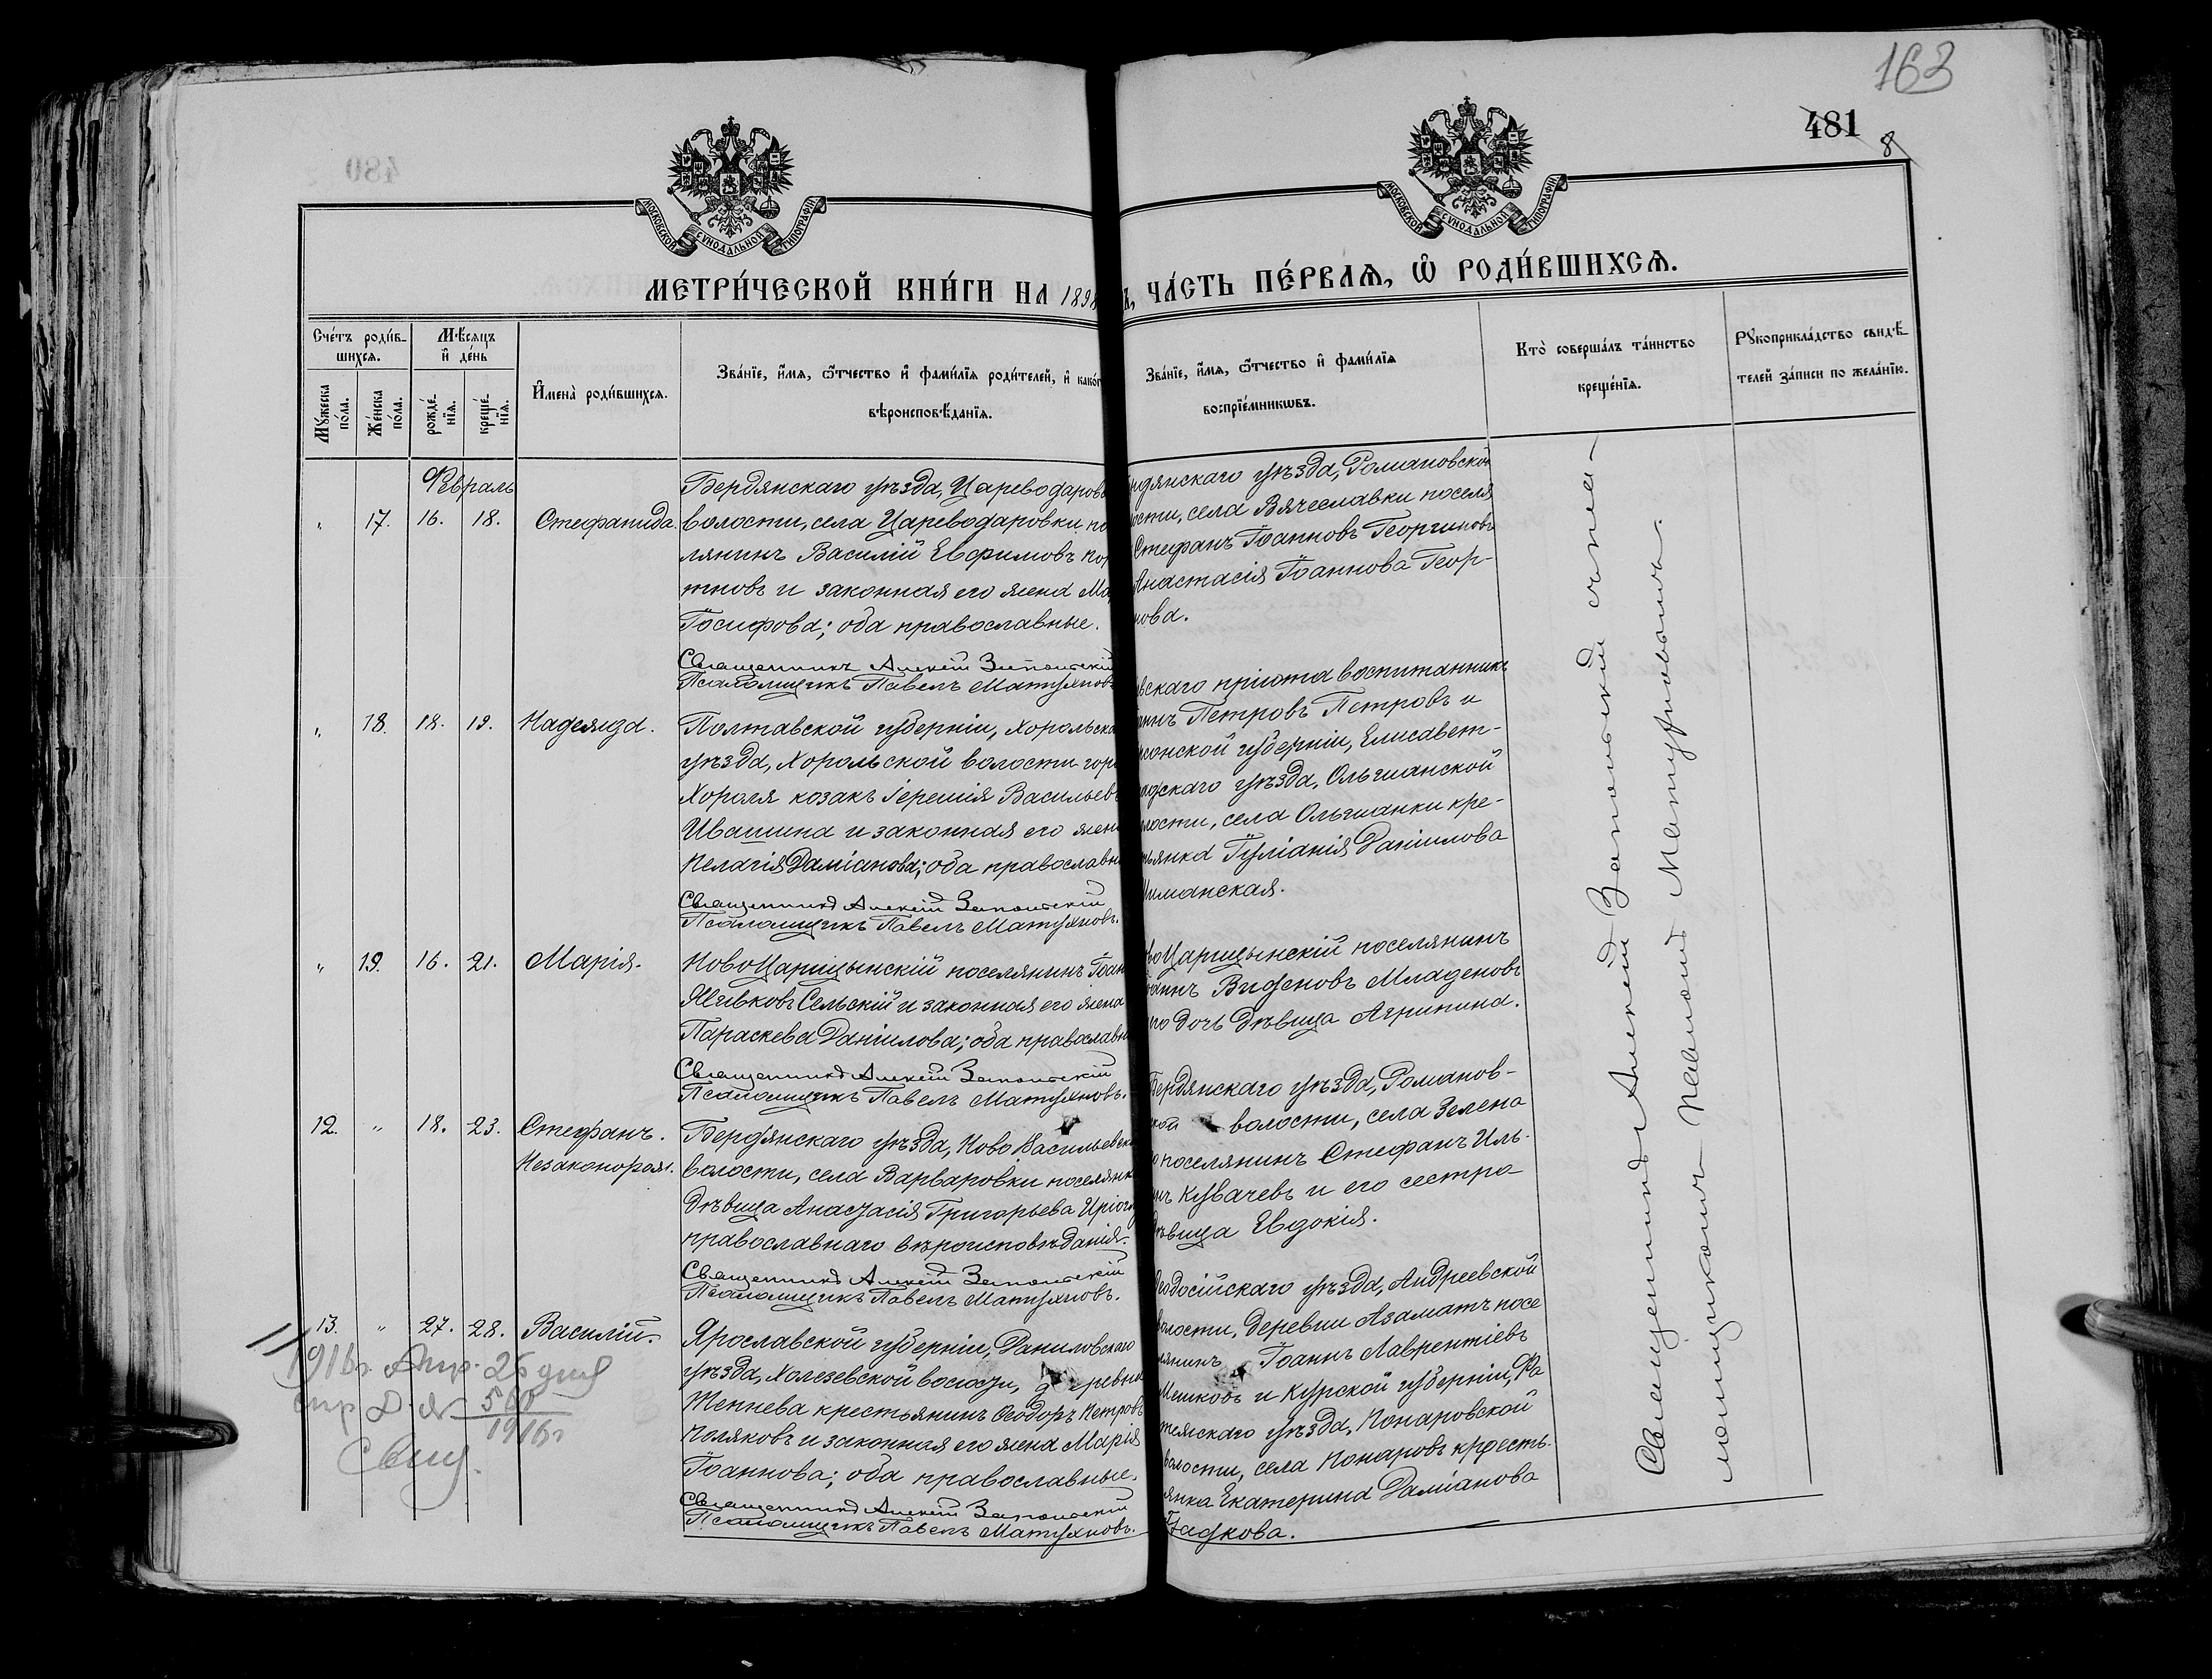 163
481
8
480
МОСКОВСКОЙ СУНОДАЛЬНОЙ ТИПОГРАФІИ
МОСКОВСКОЙ СУНОДАЛЬНОЙ ТИПОГРАФІИ
МЕТРИ́ЧЕСКОЙ КНИ́ГИ НА 1898
Ъ, ЧА́СТЬ ПЕ́РВАЯ, Ѡ РОДИ́ВШИХСЯ.
Сче́тъ роди́в-
шихся.
Мꙋжеска по́ла.
Же́нска по́ла.
Мѣ́сяцъ
и҆ де́нь
рожде́-
нїя.
креще́-
нїя.
И҆мена̀ роди́вшихся.
Зва́нїе, и҆́мя, ѻ҆́тчество и҆ фами́лїя роди́телей, и҆ како́г
вѣроисповѣ́данїя.
Зва́нїе, и҆́мя, ѻ҆́тчество и҆ фами́лїя
воспрїе́мникѡвъ.
Кто̀ соверша́лъ та́инство
креще́нїя.
Рꙋкоприкла́дство свидѣ́-
телей за́писи по жела́нїю.
Февраль
„ 17. 16. 18. Стефанида.
Бердянскаго уѣзда, Цареводаров
волости, села Цареводаровки по
лянинъ Василій Евфимовъ Кор
тновъ и законная его жена Ма
Іосифова; оба православные.
Священникъ Алексій Запольскій
Псаломщикъ Павелъ Матухновъ
рдянскаго уѣзда, Романовской
ости, села Вячеславки поселя
Стефанъ Іоанновъ Георгиновъ
Анастасія Іоаннова Геор-
нова.
„ 18. 18. 19. Надежда.
Полтавской губерніи, Хорольска
уѣзда, Хорольской волости горо
Хороля козакъ Іеремія Васильев
Ивашина и законная его жен
Пелагія Даміанова; оба православн
Священникъ Алексій Запольскій
Псаломщикъ Павелъ Матухновъ.
вскаго пріюта воспитанникъ
аннъ Петровъ Петровъ и
рсонской губерніи, Елисавет-
адскаго уѣзда, Ольшанской
лости, села Ольшанки кре-
ьянка Іуліанія Даніилова
манская.
„ 19. 16. 21. Марія.
НовоЦарицынскій поселянинъ Іоан
Живковъ Сельскій и законная его жена
Параскева Даніилова; оба православн
Священникъ Алексій Запольскій
Псаломщикъ Павелъ Матухновъ.
воЦарицынскій поселянинъ
оаннъ Виденовъ Младеновъ
го дочь дѣвица Агрипина.
12. „ 18. 23. Стефанъ.
Незаконорож.
Бердянскаго уѣзда, Ново Васильевск
волости, села Варваровки поселянк
дѣвица Анастасія Григорьева
православнаго вѣроисповѣданія.
Священникъ Алексій Запольскій
Псаломщикъ Павелъ Матухновъ.
Бердянскаго уѣзда, Романов-
кой волости, села Зелена
поселянинъ Стефанъ Иль-
нъ Кувачевъ и его сестра
дѣвица Евдокія.
13. „ 27. 28. Василій.
Ярославской губерніи, Даниловскаго
уѣзда, Холезевской волости, деревни
Теннева крестьянинъ Ѳеодоръ Петровъ
Поляковъ и законная его жена Марія
Іоаннова; оба православные.
Священникъ Алексій Запольскій
Псаломщикъ Павелъ Матухновъ.
еодосійскаго уѣзда, Андреевской
волости, деревни Азаматъ посе
лянинъ Іоаннъ Лаврентіевъ
Мешковъ и Курской губерніи, Фа
тежскаго уѣзда, Понаровской
волости, села Понаровъ кресть-
янка Екатерина Даміанова
1916г. Апр. 26 дня
560
1916г
Свящ.
Священникъ Алексій Запольскій съ пса-
ломщикомъ Павломъ Матухновымъ.